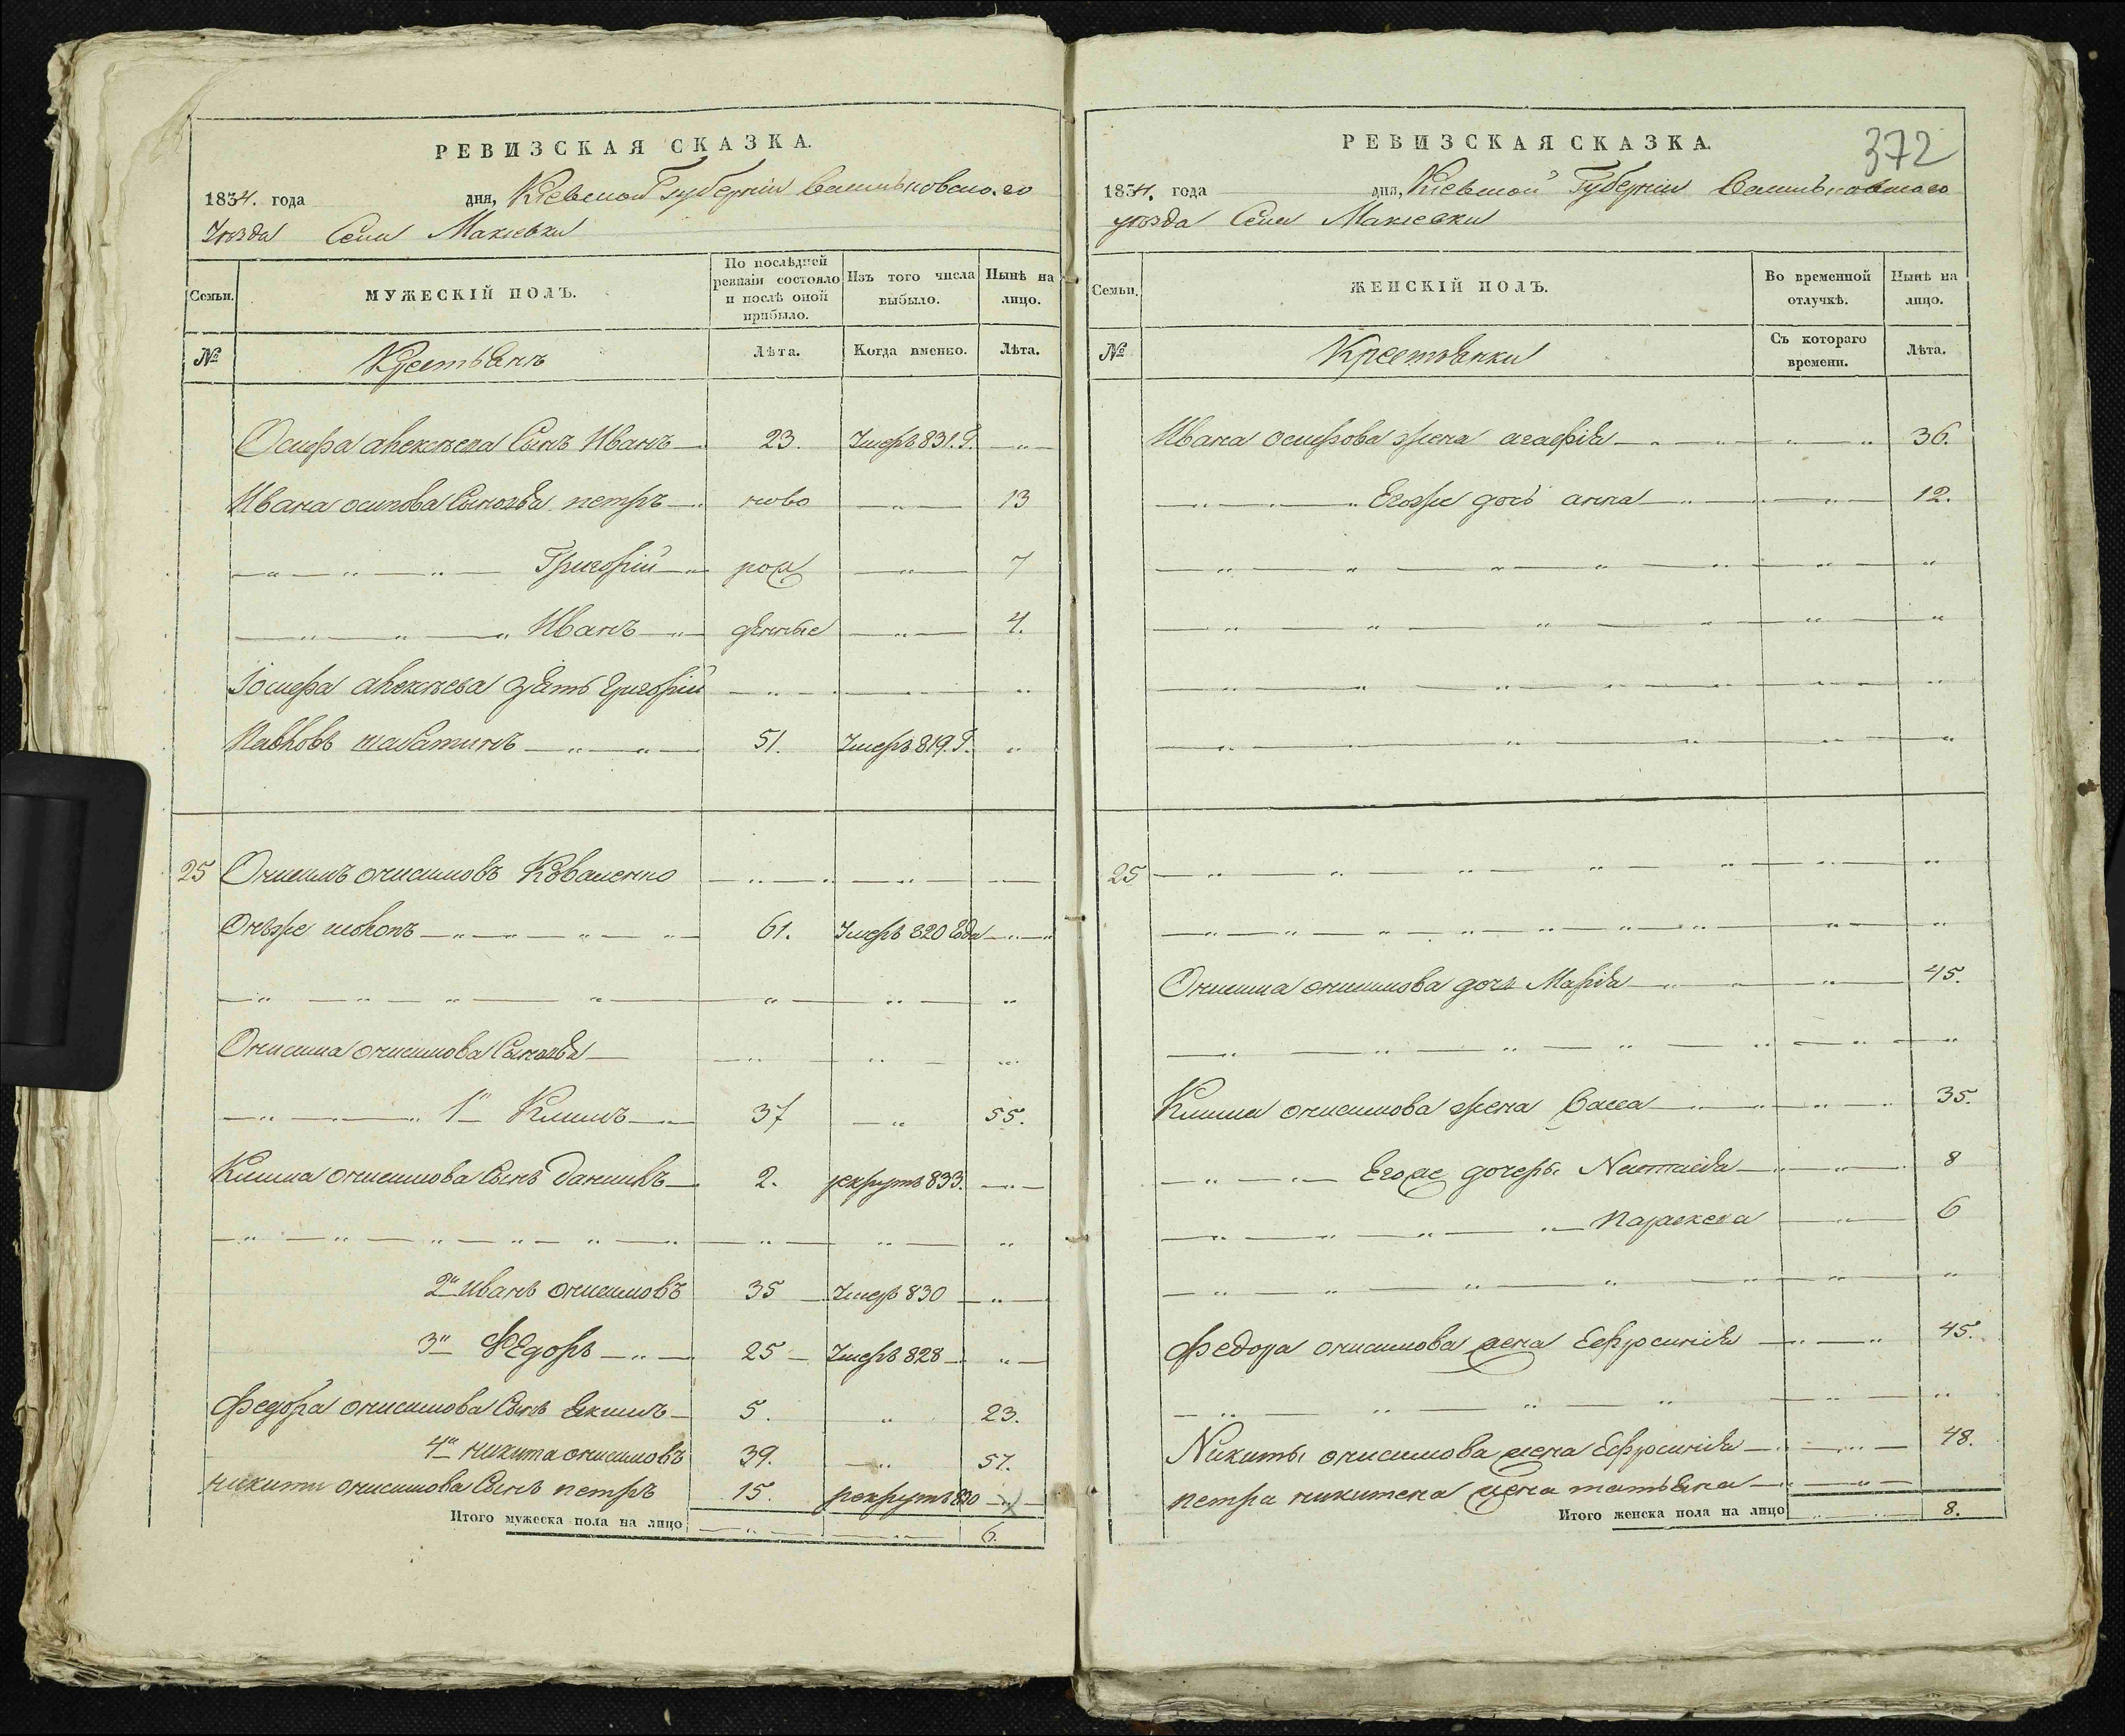 РЕВИЗСКАЯ СКАЗКА.
1834. года дня, Кіевской Губерніи Васильковского
Уезда Села Макіевки
Семьи. МУЖЕСКІЙ ПОЛЪ. По послѣдней ревизіи состояло и послѣ оной прибыло. Изъ того числа выбыло. Нынѣ на лицо.
№ Крестьянъ Лѣта. Когда именно. Лѣта.
Осифа алексеева Сынъ Иванъ 23. Умеръ 831. Г. "
Ивана осипова Сыновья петръ ново " 13
Григорій рож " 7
Иванъ денные " 4.
Іосифа алексеева зять Григорій " " "
Павловъ 51. Умеръ 819. Г. "
25 Онисимъ онисимовъ Коваленко " " "
Онъже 61. Умеръ 820 Года "
Онисима онисимова Сыновья " " "
1й Климъ 37 " 55.
Клима онисимова Сынъ данилъ 2. рекрутъ 833. "
2й иванъ онисимовъ 35 Умеръ 830 "
3й Федоръ 25 Умеръ 828 "
Федора онисимова Сынъ Якимъ 5. " 23.
4й никита онисимовъ 39. " 57.
никиты онисимова Сынъ петръ 15. рекрутъ 830
Итого мужеска пола на лицо " " 6.
372
РЕВИЗСКАЯ СКАЗКА.
1834. года дня, Кіевской Губерніи Васильковского
уезда Села Макіевки
Семьи. ЖЕНСКІЙ ПОЛЪ. Во временной отлучкѣ. Нынѣ на лицо.
№ Крестьянки Съ котораго времени. Лѣта.
Ивана осифова жена агафія " 36.
Егоже дочь анна " 12.
25
Онисима онисимова дочь Марія " 45.
Клима онисимова жена Васса " 35.
Егоже дочеръ Настасія " 8
Параскева " 6
Федора онисимова жена Ефросинія " 45.
Никиты онисимова жена Ефросинія " 48.
петра никитена жена татьяна "
Итого женска пола на лицо " 8.